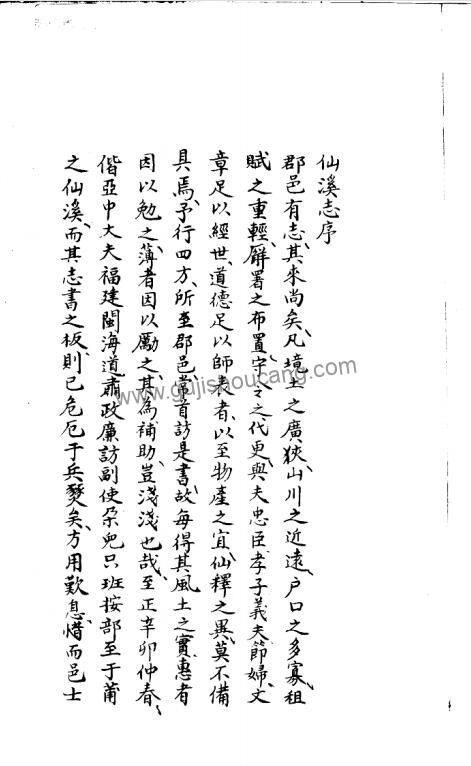 仙溪志序
郡邑有志、其來尚矣、凡境土之廣狹、山川之近遠、户口之多寡、租
賦之重輕、廨署之布置、守令之代更、與夫忠臣孝子義夫節婦、文
章足以經世、道德足以師表者、以至物產之宜、仙釋之異、莫不備
具焉、予行四方、所至郡邑、嘗首訪是書、故每得其風土之實、惠者
因以勉之、薄者因以勵之、其為補助、豈淺淺也哉、至正辛卯仲春、
偕亞中大夫福建閩海道肅政廉訪副使朶兒只班按部至于莆
之仙溪、而其志書之板、則已危厄于兵燹矣、方用歎息、惜而邑士
www.gujishoucang.com